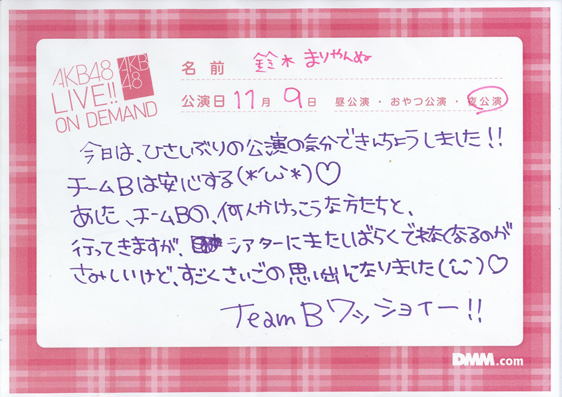 AKB48
LIVE!!
ON DEMAND
AKB
48
名前 鈴木まりやんぬ
公演日 11月9日 昼公演・おやつ公演・夜公演
今日は、ひさしぶりの公演の気分できんちょうしました!!
チームBは安心する(*´ω`*)♡
あした、チームBの、何人かけっこうな方たちと、
行ってきますが、シアターにまたしばらくでれなくなるのが
さみしいけど、すごくさいごの思い出になりました(´ω`)♡
Team Bワッショイー!!
DMM.com